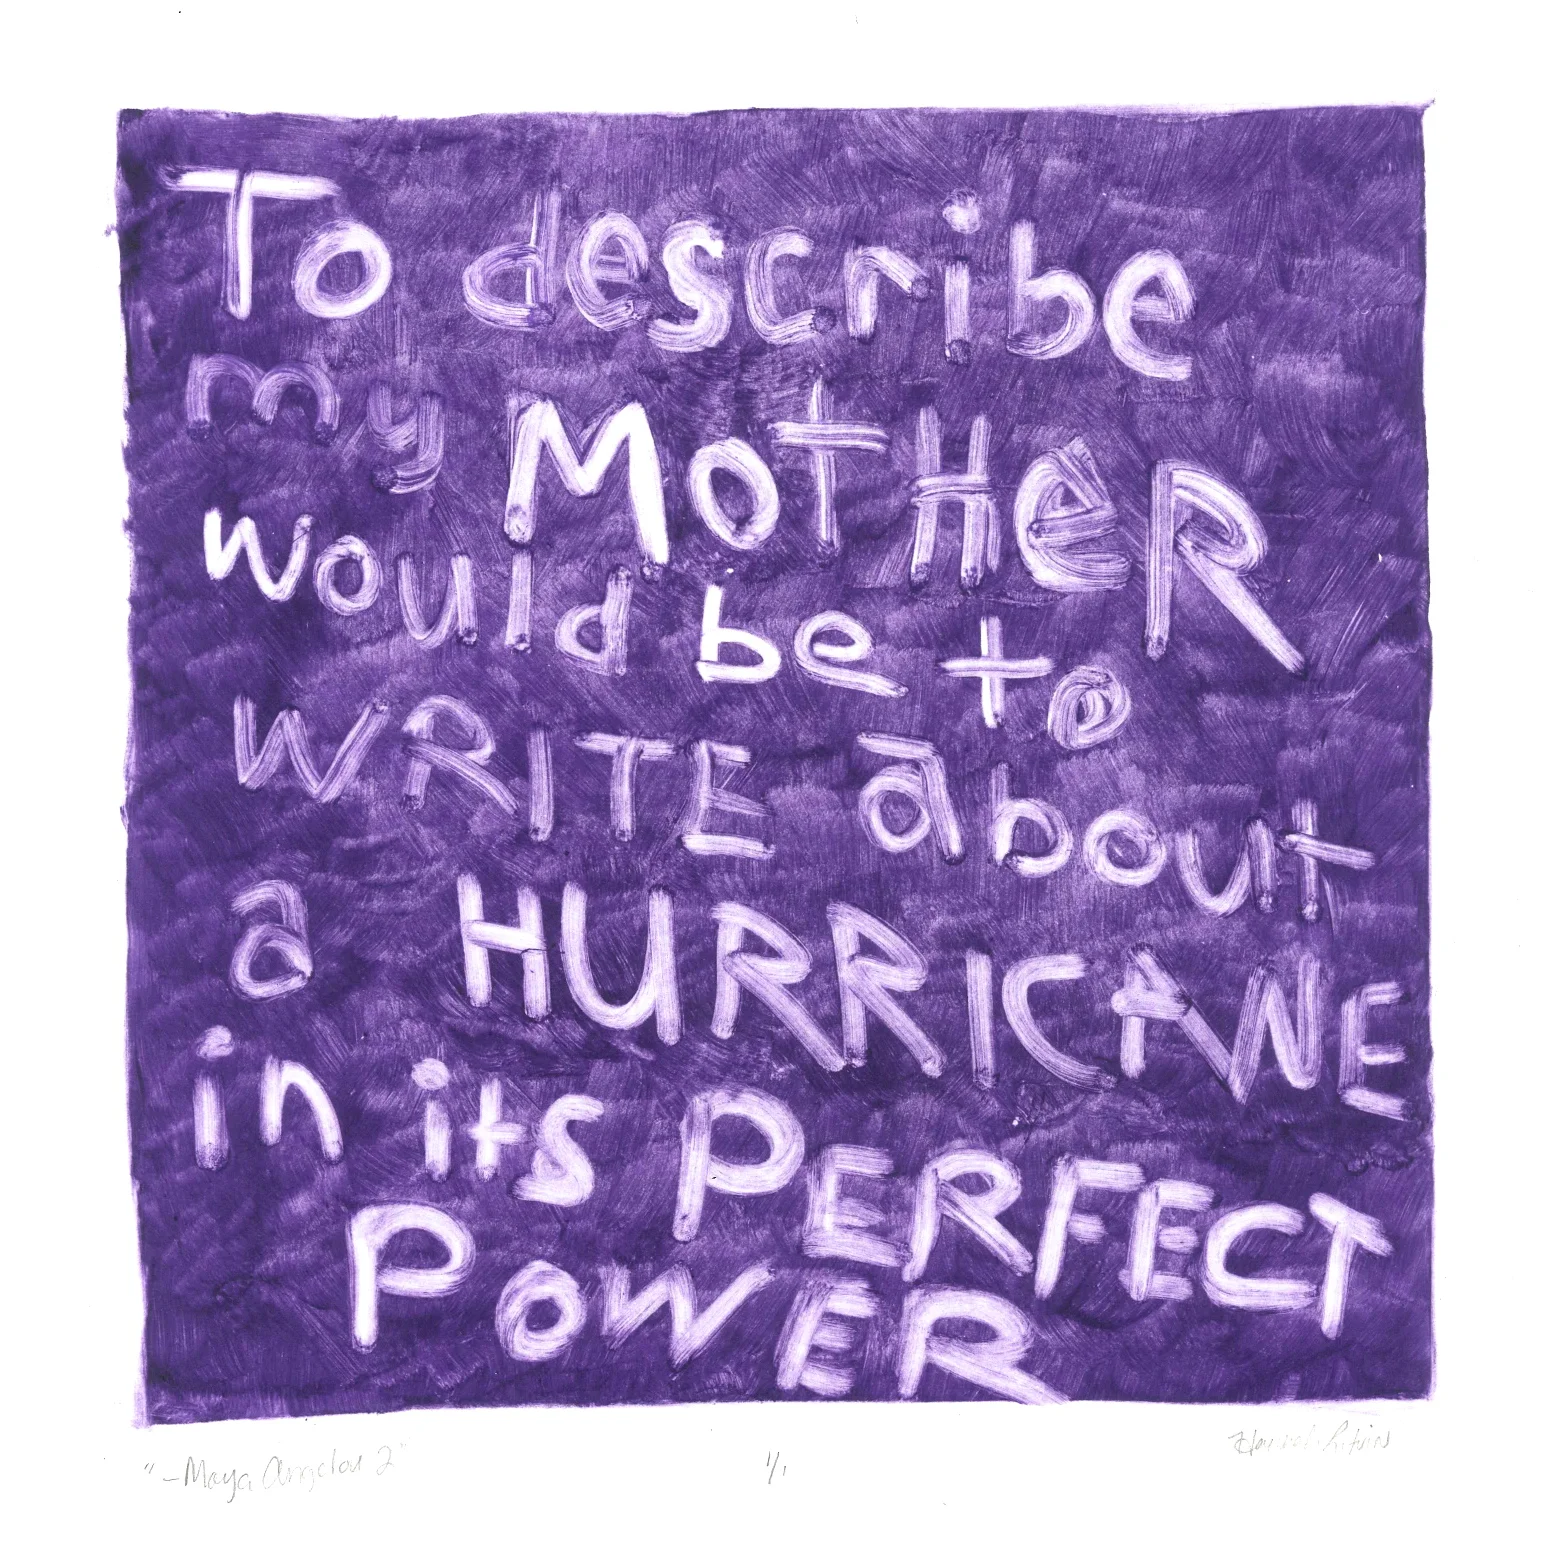 To describe
my MoTHeR
would be to
WRITE about
a HURRICANE
in its PERFECT
POWER
"–Maya Angelou 2"
1/1